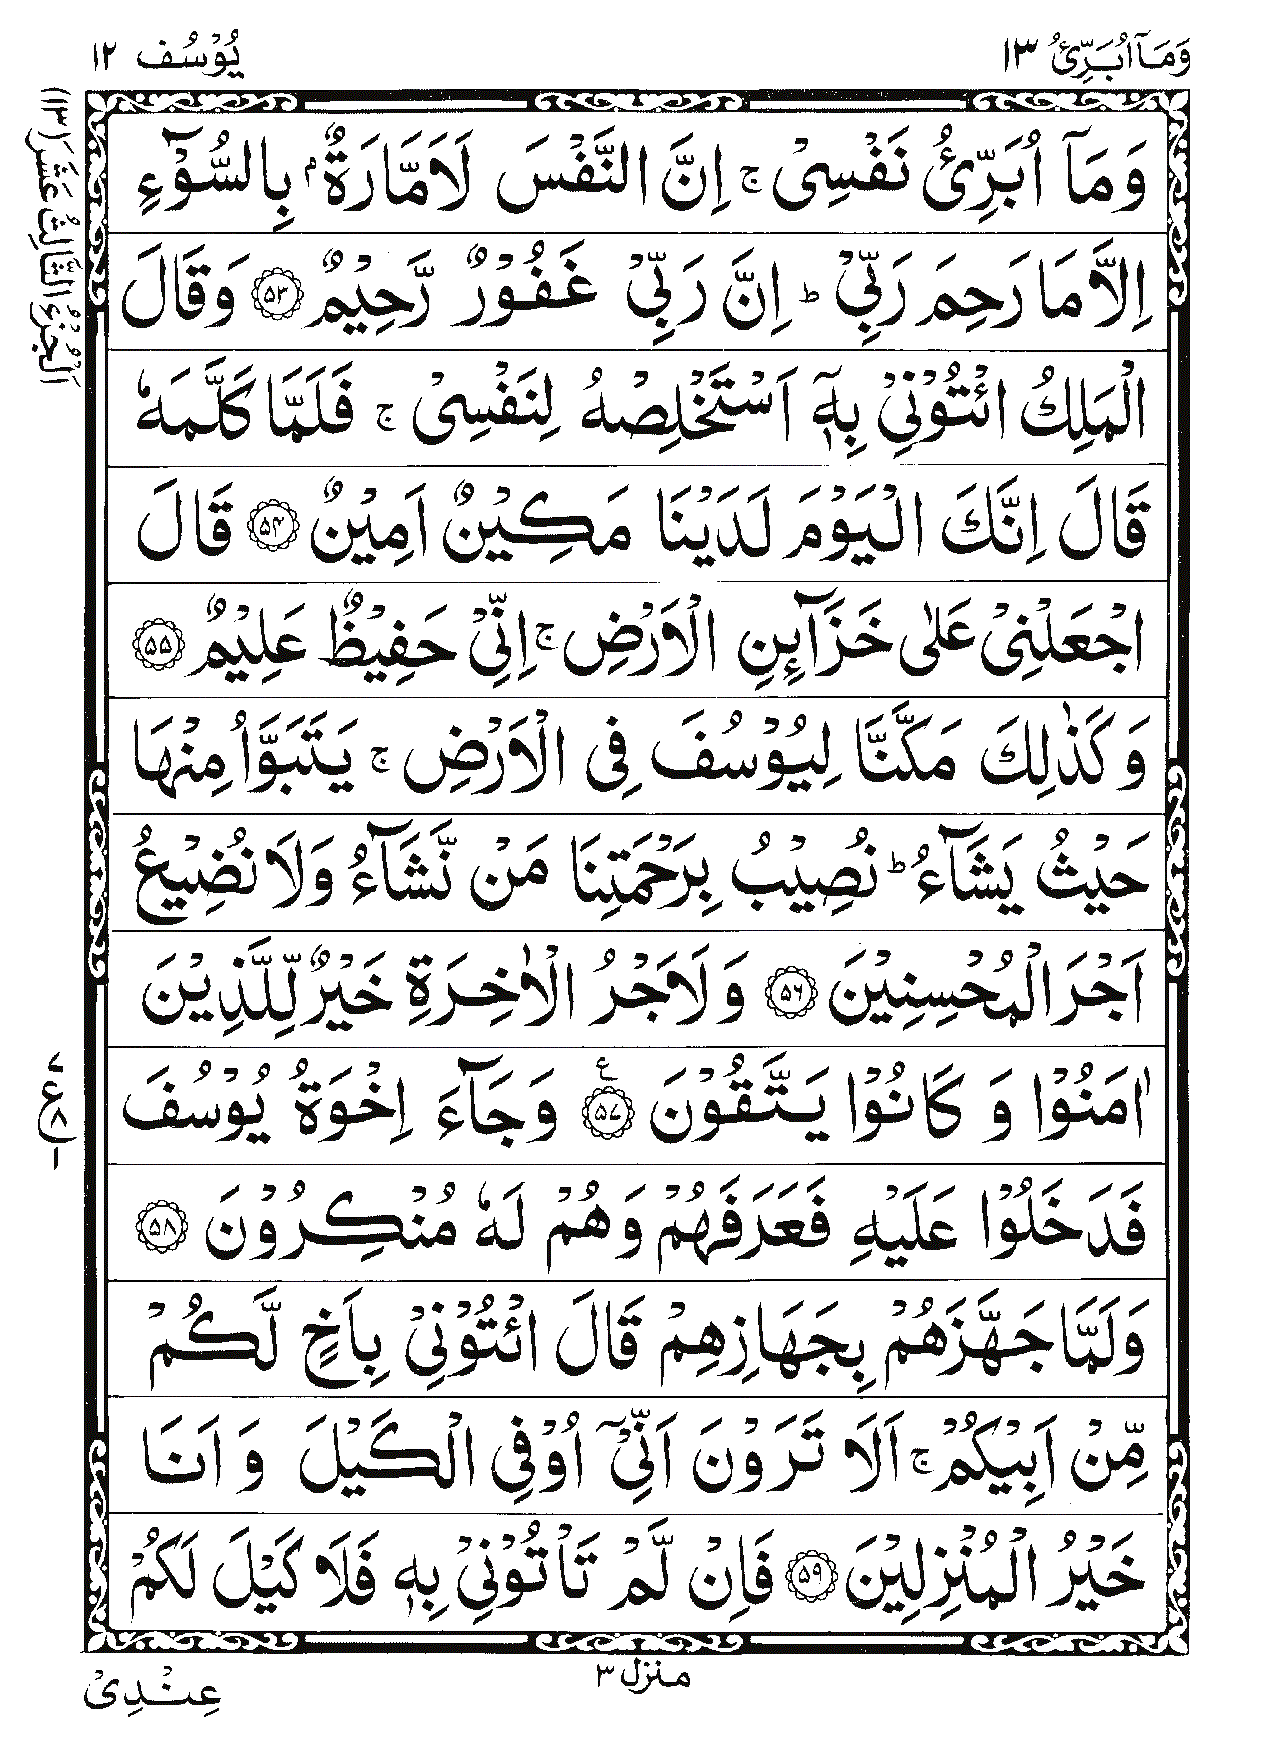 وَمَآ اُبَرِّئُ ١٣
يُوْسُف ١٢
اَلْجُزْءُ الثَّالِثُ عَشَرَ (١٣)
وَمَآ اُبَرِّئُ نَفْسِىْ ۚ اِنَّ النَّفْسَ لَاَمَّارَةٌۢ بِالسُّوْٓءِ
اِلَّا مَا رَحِمَ رَبِّىْ ؕ اِنَّ رَبِّىْ غَفُوْرٌ رَّحِيْمٌ ﴿۵۳﴾ وَقَالَ
الْمَلِكُ ائْتُوْنِىْ بِهٖٓ اَسْتَخْلِصْهُ لِنَفْسِىْ ۚ فَلَمَّا كَلَّمَهٗ
قَالَ اِنَّكَ الْيَوْمَ لَدَيْنَا مَكِيْنٌ اَمِيْنٌ ﴿۵۴﴾ قَالَ
اجْعَلْنِىْ عَلٰى خَزَآئِنِ الْاَرْضِ ۚ اِنِّىْ حَفِيْظٌ عَلِيْمٌ ﴿۵۵﴾
وَكَذٰلِكَ مَكَّنَّا لِيُوْسُفَ فِى الْاَرْضِ ۚ يَتَبَوَّاُ مِنْهَا
حَيْثُ يَشَآءُ ؕ نُصِيْبُ بِرَحْمَتِنَا مَنْ نَّشَآءُ وَلَا نُضِيْعُ
اَجْرَ الْمُحْسِنِيْنَ ﴿۵۶﴾ وَلَاَجْرُ الْاٰخِرَةِ خَيْرٌ لِّلَّذِيْنَ
اٰمَنُوْا وَ كَانُوْا يَتَّقُوْنَ ﴿۵۷﴾ ع وَجَآءَ اِخْوَةُ يُوْسُفَ
فَدَخَلُوْا عَلَيْهِ فَعَرَفَهُمْ وَهُمْ لَهٗ مُنْكِرُوْنَ ﴿۵۸﴾
وَلَمَّا جَهَّزَهُمْ بِجَهَازِهِمْ قَالَ ائْتُوْنِىْ بِاَخٍ لَّكُمْ
مِّنْ اَبِيْكُمْ ۚ اَلَا تَرَوْنَ اَنِّىْٓ اُوْفِى الْكَيْلَ وَ اَنَا
خَيْرُ الْمُنْزِلِيْنَ ﴿۵۹﴾ فَاِنْ لَّمْ تَاْتُوْنِىْ بِهٖ فَلَا كَيْلَ لَكُمْ
٧
ع ٨
١
منزل ٣
عِنْدِىْ